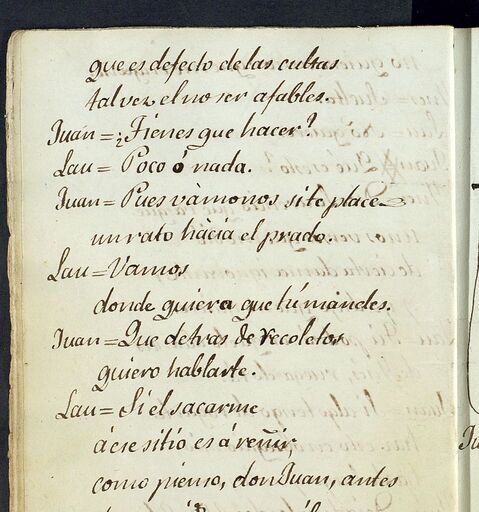 que es defecto de las cultas
tal vez el no ser afables.
Juan = ¿Tienes que hacer?
Lau = Poco ó nada.
Juan = Pues vàmonos si te place
un rato hàcia el prado.
Lau = Vamos
donde quiera que tú mandes.
Juan = Que detras de recoletos
quiero hablarte.
Lau = Si el sacarme
á ese sitio es á reñir,
como pienso, don Juan, antes